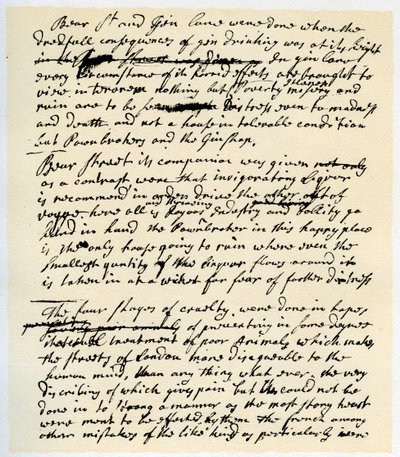 Bear St and Gin Lane were done when the
dredfull consequences of gin drinking was at its hight
In gin lane
every circumstance of its horrid effects are brought to
view in terorem nothing but Poverty misery and
ruin are to be seen Distress even to madness
and death and not a house in tolerable condition
but Pawnbrokers and the Ginshop.
Bear Street its companion was given not only
as a contrast were that invigorating liquor
is recommend in order drive the other out of
vogue. here all is Joyous Industry and Jollity go
hand in hand the Pawnbroker in this happy place
is the only house going to ruin where even the
smallest quntity of the liquor flows around it
is taken in at a wicket for fear of farther distress
The four stages of cruelty, were done in hopes
of preventing in some degree
treatment of poor Animals which makes
the streets of London more disagreable to the
human mind, than any thing what ever. the very
discribing of which gives pain but this could not be
done in so strong a manner as the most stony heart
were ment to be effected by them the among
other mistakes of the like kind as particularly were